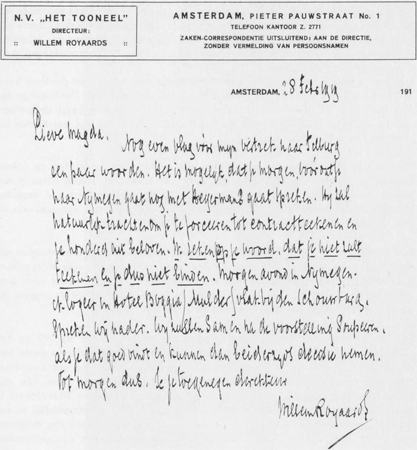 N.V. „HET TOONEEL”
DIRECTEUR:
WILLEM ROYAARDS
AMSTERDAM, PIETER PAUWSTRAAT No. 1
TELEFOON KANTOOR Z. 2771
ZAKEN-CORRESPONDENTIE UITSLUITEND: AAN DE DIRECTIE,
ZONDER VERMELDING VAN PERSOONSNAMEN
AMSTERDAM, 28 Febr 1919 191
Lieve Magda.
Nog even vlug vóór mijn vertrek naar Tilburg
een paar woorden. Het is mogelijk, dat je morgen, vóór je
naar Nijmegen gaat nog met Heyermans gaat spreken. Hij zal
natuurlijk trachten om je te forceeren tot contractteekenen en
je honderd uit beloven. Ik reken op je woord, dat je niet zult
teekenen en je dus niet binden. Morgenavond in Nijmegen
ik logeer in Hotel Boggia (Mulder) vlak bij den Schouwburg.
spreken wij nader. Wij zullen Sam en na de voorstelling soupeeren
als je dat goed vindt en kunnen dan beiderzijds decisie nemen.
Tot morgen dus. Je toegenegen directeur
Willem Royaards